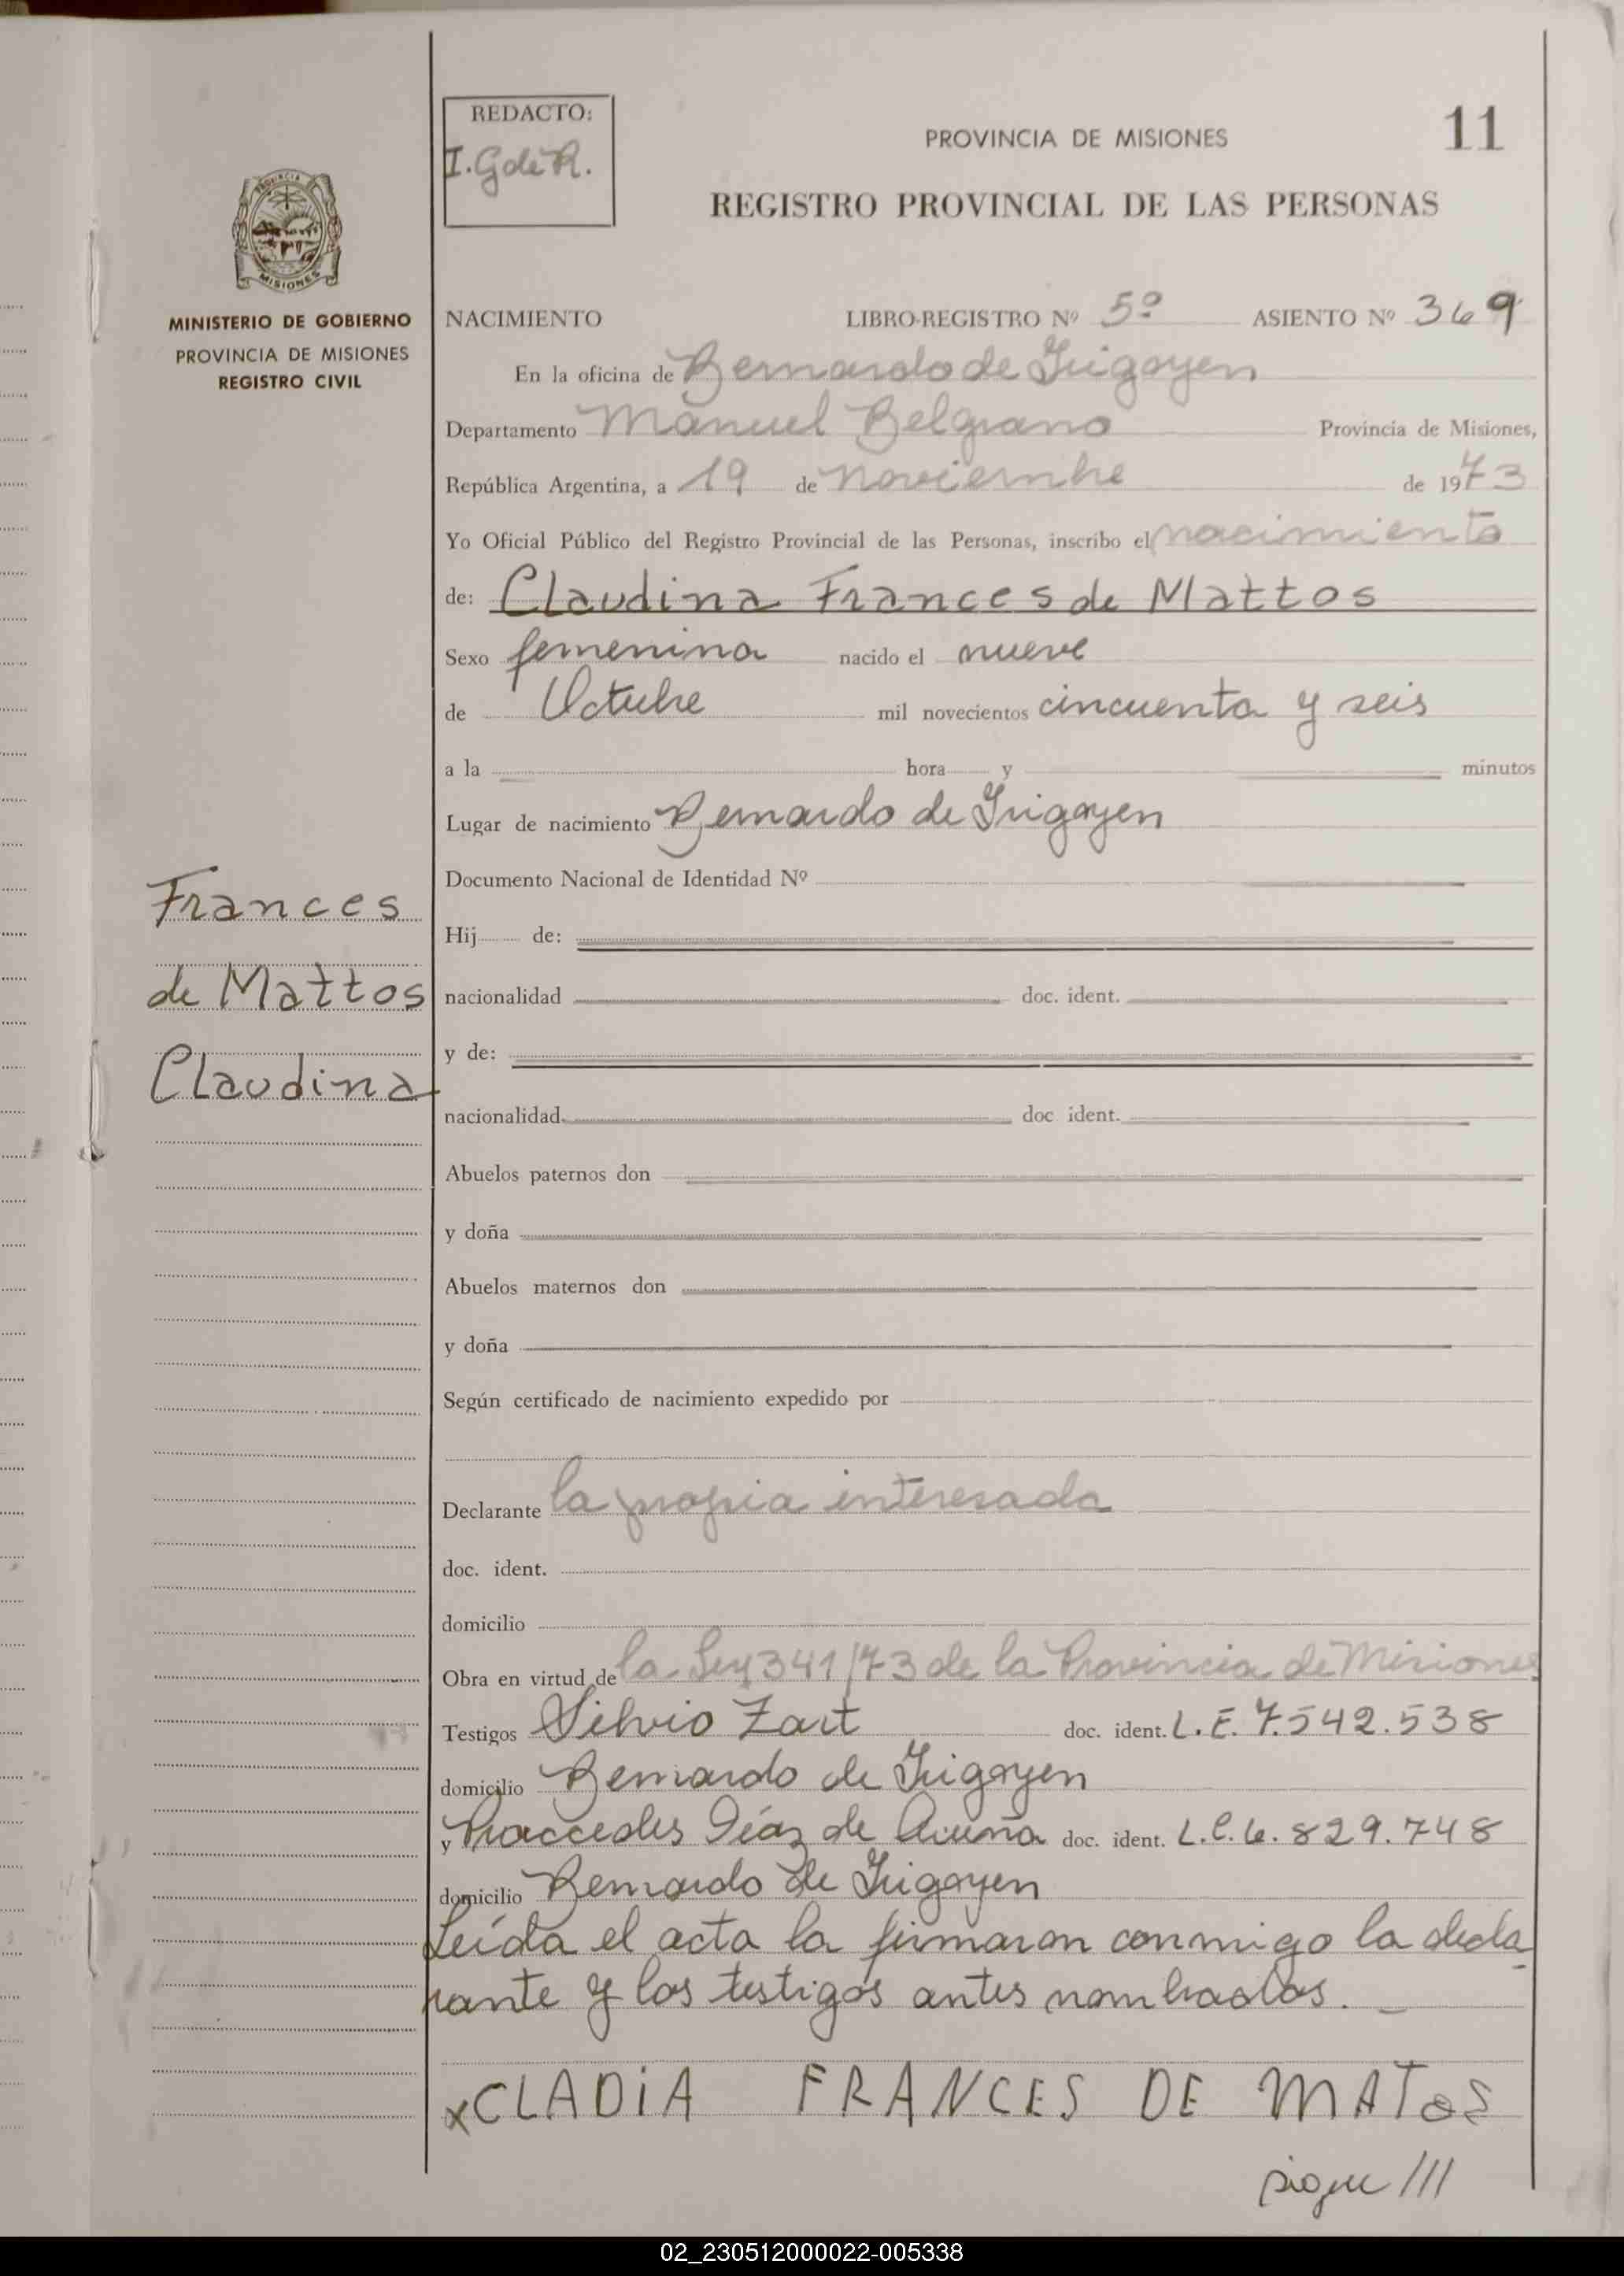 REDACTO:
I. G de R.
PROVINCIA DE MISIONES
11
REGISTRO PROVINCIAL DE LAS PERSONAS
PROVINCIA DE
MISIONES
MINISTERIO DE GOBIERNO
PROVINCIA DE MISIONES
REGISTRO CIVIL
NACIMIENTO LIBRO-REGISTRO Nº 5º ASIENTO Nº 369
En la oficina de Bernardo de Irigoyen
Departamento Manuel Belgrano Provincia de Misiones,
República Argentina, a 19 de noviembre de 1973
Yo Oficial Público del Registro Provincial de las Personas, inscribo el nacimiento
de: Claudina Frances de Mattos
Sexo femenina nacido el nueve
de Octubre mil novecientos cincuenta y seis
a la hora y minutos
Lugar de nacimiento Bernardo de Irigoyen
Documento Nacional de Identidad Nº
Frances
de Mattos
Claudina
Hij de:
nacionalidad doc. ident.
y de:
nacionalidad doc ident.
Abuelos paternos don
y doña
Abuelos maternos don
y doña
Según certificado de nacimiento expedido por
Declarante la propia interesada
doc. ident.
domicilio
Obra en virtud de la Ley 341/73 de la Provincia de Misiones
Testigos Silvio Zart doc. ident. L.E. 7.542.538
domicilio Bernardo de Irigoyen
y Praccedes Díaz de Acuña doc. ident. L.C. 6.829.748
domicilio Bernardo de Irigoyen
Leída el acta la firmaron conmigo la decla
rante y los testigos antes nombrados.
x CLADIA FRANCES DE MATOS
sigue ///
02_230512000022-005338